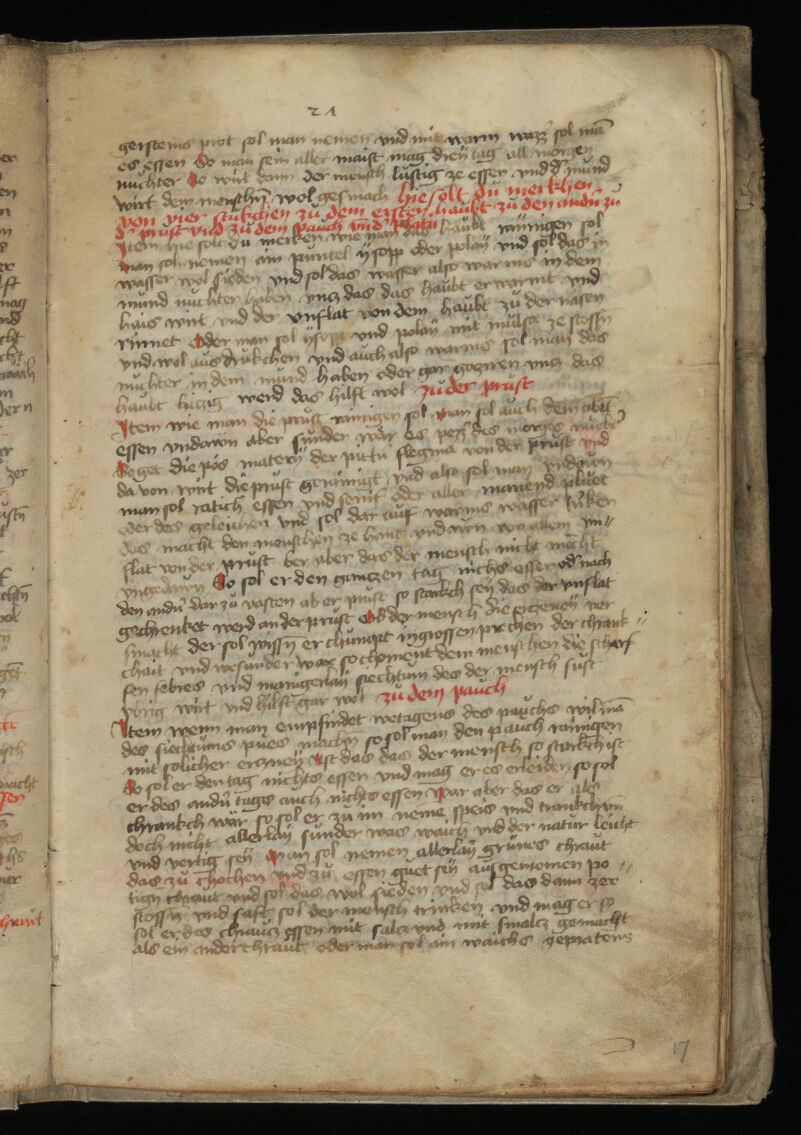 21
gerstems prot sol man nemen vnd mit warm wazz' sol mā
es essen So man sein aller maist mag dreÿ tag all morgen
nuchter So wirt dann der mensch lustig ze essen vnd d' mund
wirt dem menschn̄ wol gesmach hie solt du merkhen
von vier stukchen zu dem ersten haubt zu den andn̄ zu
d' prust vnd zu dem pauch vnd
Item hie solt du merken wie man das haubt rainigen sol
Man sol nemen ain puntel ÿsopp oder polaÿ vnd sol das in
wasser wol sieden vnd sol das wasser also warms in dem
mund nuchter haben vncz das das haubt erwarmt vnd
hais wirt vnd der vnflat von dem haubt zu der nasen
rinnet Oder man sol ÿsopp vnd polaÿ mit mulsa ze stossn̄
vnd wol aus drukchen vnd auch also warms sol man das
nuchter in dem mund haben oder gar vncz das
haubt hiczig werd das hilft wol zu der prust
Item wie man die prust rainigen sol Man sol auch dem
essen vndawn aber sunder wār es pezz' des morgēs nucht'
So get die pös materÿ der pittn̄ flegma von der prust vnd
da von wirt die prust gerainigt vnd also sol man vndawn
man sol ratich essen vnd senif oder aller pluet
oder des geleichen vnd sol dar auf warms wasser trīken
das macht den menschen ze hant vndawn von allem vn=
flat von der prust ber aber das der mensch nicht mocht
vngedawn So sol er den ganczen tag nichs essen od' nach
den andn̄ dar zu vasten ab er prust so starkch seÿ das der vnflat
gechrenket werd an der prust Ob der mensch die erczneÿ ver
smacht der sol wissn̄ er chumpt in grossen prechen der chrank=
chait vnd besunder so choment dem menschen die scharf
fen febres vnd manigerlaÿ siechtum des der mensch sust
vbrig wirt vnd hilft gar wol zu dem pauch
Item wenn man empfindet wetagens des pauchs wil mā
des siechtums pues machn̄ so sol man den pauch rainigen
mit solicher erczneÿ Ist das das der mensch so starkch ist
So sol er den tag nichts essen vnd mag er es erleiden so sol
er des andn̄ tages auch nichts essen War aber das er als
chrankch wār so sol er zu im neme speis vnd trankch vn̄
doch nicht allerlaÿ sunder was waich vnd der natur leicht
vnd vertig seÿ Man sol nemen allerlaÿ grünes chraut
das zu chochen vnd zu essen guet seÿ ausgenomen po=
tign chraut vnd sol das wol sieden vnd sol das dann zer
stossn̄ vnd saft sol der mensch trinken vnd mag er so
sol er des chrautz essen mit salcz vnd mit smalcz gemacht
als ein ander chraut oder man sol ain waichs gepratens
17